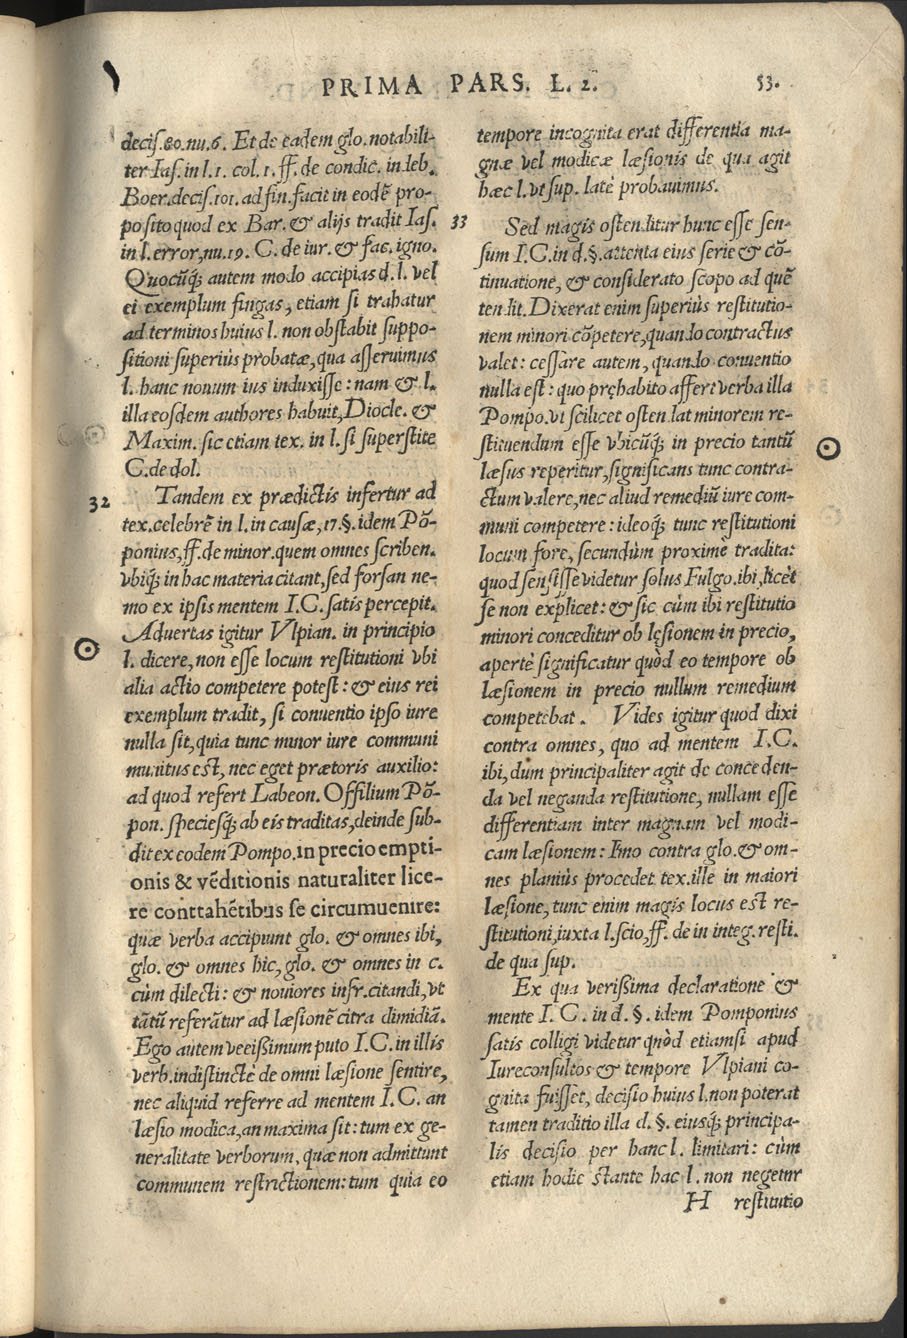 PRIMA PARS. L. 2.
53.
decis.80.nu.6. Et de eadem glo.notabili-
ter Ias. in l.1. col.1.ff.de condic. in deb.
Boer.decis.101. ad fin.facit in eodē pro-
posito quod ex Bar. & alijs tradit Ias.
in l.error,nu.19. C. de iur. & fac. igno.
Quocūq; autem modo accipias d.l. vel
ei exemplum fingas, etiam si trahatur
ad terminos huius l. non obstabit suppo-
sitioni superiùs probatæ, qua asseruimus
l. hanc nouum ius induxisse: nam & l.
illa eosdem authores habuit, Diocle. &
Maxim. sic etiam tex. in l. si superstite
C. de dol.
32
Tandem ex prædictis infertur ad
tex.celebrē in l. in causæ, 17.§. idem Pō-
ponius,ff.de minor.quem omnes scriben.
vbiq; in hac materia citant, sed forsan ne-
mo ex ipsis mentem I.C. satis percepit.
Aduertas igitur Vlpian. in principio
l. dicere, non esse locum restitutioni vbi
alia actio competere potest: & eius rei
exemplum tradit, si conuentio ipso iure
nulla sit, quia tunc minor iure communi
munitus est, nec eget prætoris auxilio:
ad quod refert Labeon. Offilium Pō-
pon. speciesq; ab eis traditas, deinde sub-
dit ex eodem Pompo. in precio empti-
onis & vēditionis naturaliter lice-
re conttahētibus se circumuenire:
quæ verba accipiunt glo. & omnes ibi,
glo. & omnes hic, glo. & omnes in c.
cùm dilecti: & nouiores infr.citandi, vt
tātū referātur ad læsionē citra dimidiā.
Ego autem veeißimum puto I.C. in illis
verb. indistinctè de omni læsione sentire,
nec aliquid referre ad mentem I.C. an
læsio modica, an maxima sit: tum ex ge-
neralitate verborum, quæ non admittunt
communem restrictionem: tum quia eo
tempore incognita erat differentia ma-
gnæ vel modicæ læsionis de qua agit
hæc l. vt sup. latè probauimus.
33
Sed magis ostenditur hunc esse sen-
sum I.C. in d.§. attenta eius serie & cō-
tinuatione, & considerato scopo ad quē
tendit. Dixerat enim superiùs restitutio-
nem minori cōpetere, quando contractus
valet: cessare autem, quando conuentio
nulla est: quo pręhabito affert verba illa
Pompo. vt scilicet ostendat minorem re-
stituendum esse vbicūq; in precio tantū
læsus reperitur, significans tunc contra-
ctum valere, nec aliud remediū iure com-
muni competere: ideoq; tunc restitutioni
locum fore, secundùm proximè tradita:
quod sensisse videtur solus Fulgo. ibi, licèt
se non explicet: & sic cùm ibi restitutio
minori conceditur ob lęsionem in precio,
apertè significatur quòd eo tempore ob
læsionem in precio nullum remedium
competebat. Vides igitur quod dixi
contra omnes, quo ad mentem I.C.
ibi, dum principaliter agit de conceden-
da vel neganda restitutione, nullam esse
differentiam inter magnam vel modi-
cam læsionem: Imo contra glo. & om-
nes planiùs procedet tex. ille in maiori
læsione, tunc enim magis locus est re-
stitutioni, iuxta l.scio,ff. de in integ. resti.
de qua sup.
Ex qua verißima declaratione &
mente I. C. in d. §. idem Pomponius
satis colligi videtur quòd etiamsi apud
Iureconsultos & tempore Vlpiani co-
gnita fuisset, decisio huius l. non poterat
tamen traditio illa d. §. eiusq; principa-
lis decisio per hanc l. limitari: cùm
etiam hodie stante hac l. non negetur
H restitutio